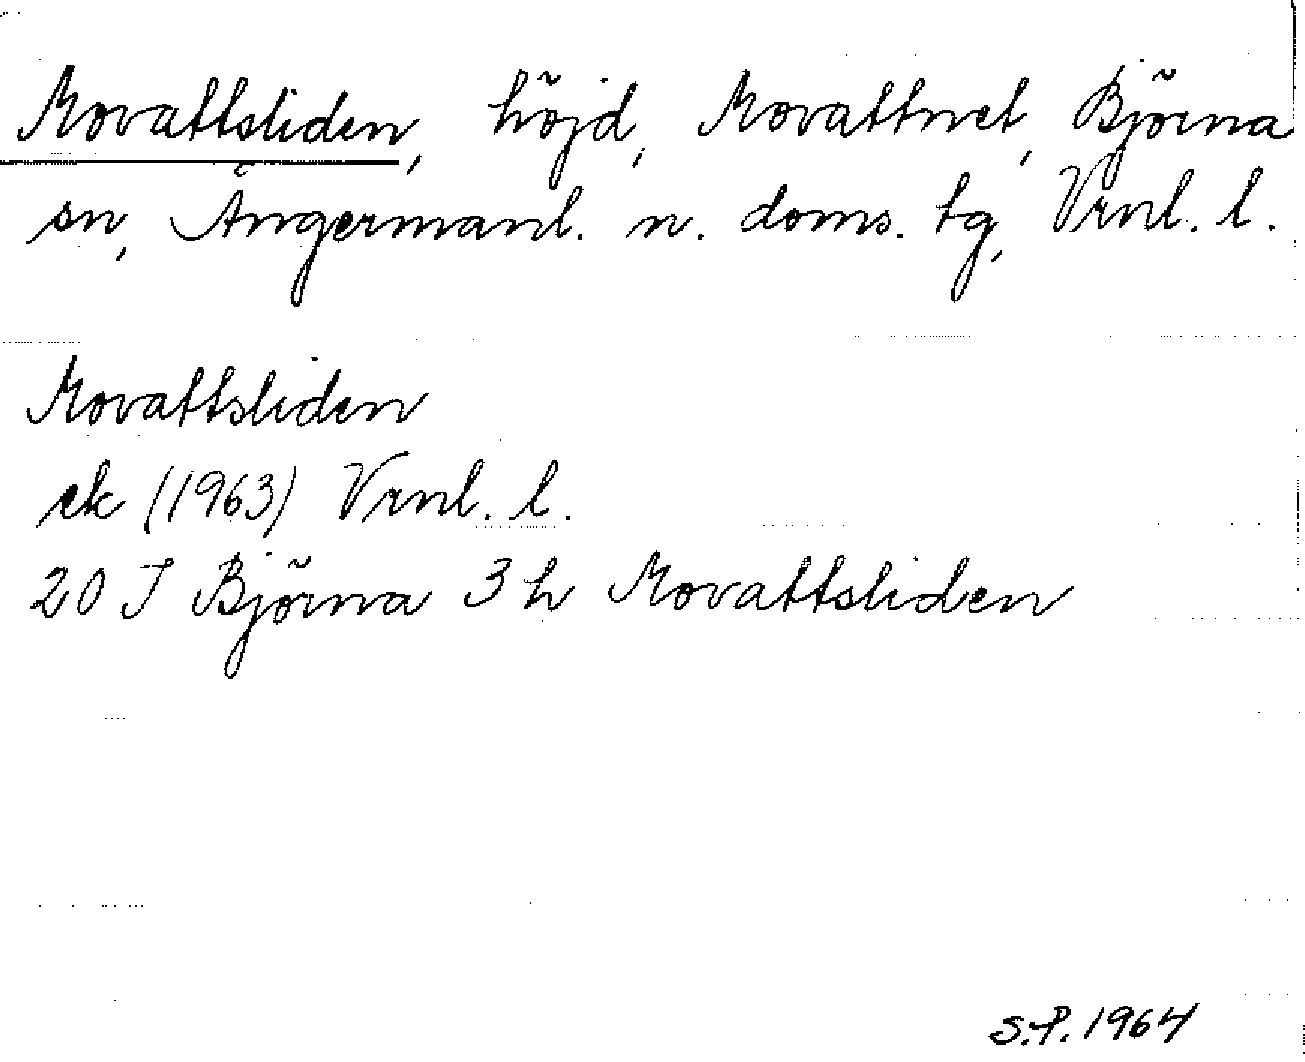 Movattsliden, höjd, Movattnet, Björna
sn, Ångermanl. n. doms. tg, Vrnl. l.
Movattsliden
ek (1963) Vrnl. l.
20 J Björna 3 h Movattsliden
S.P. 1964